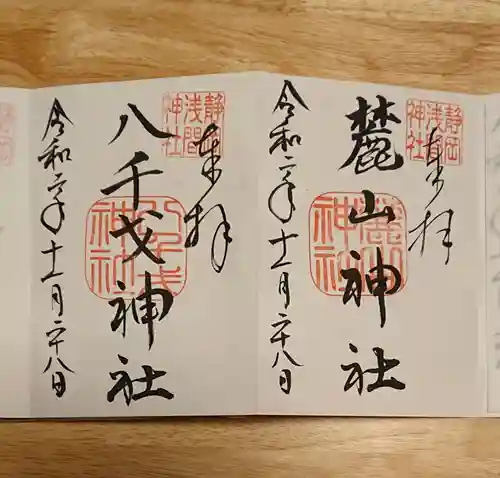 静岡
浅間
神社
奉拝
麓山神社
麓山
神社
令和二年十一月二十八日
静岡
浅間
神社
奉拝
八千戈神社
八千戈
神社
令和二年十一月二十八日